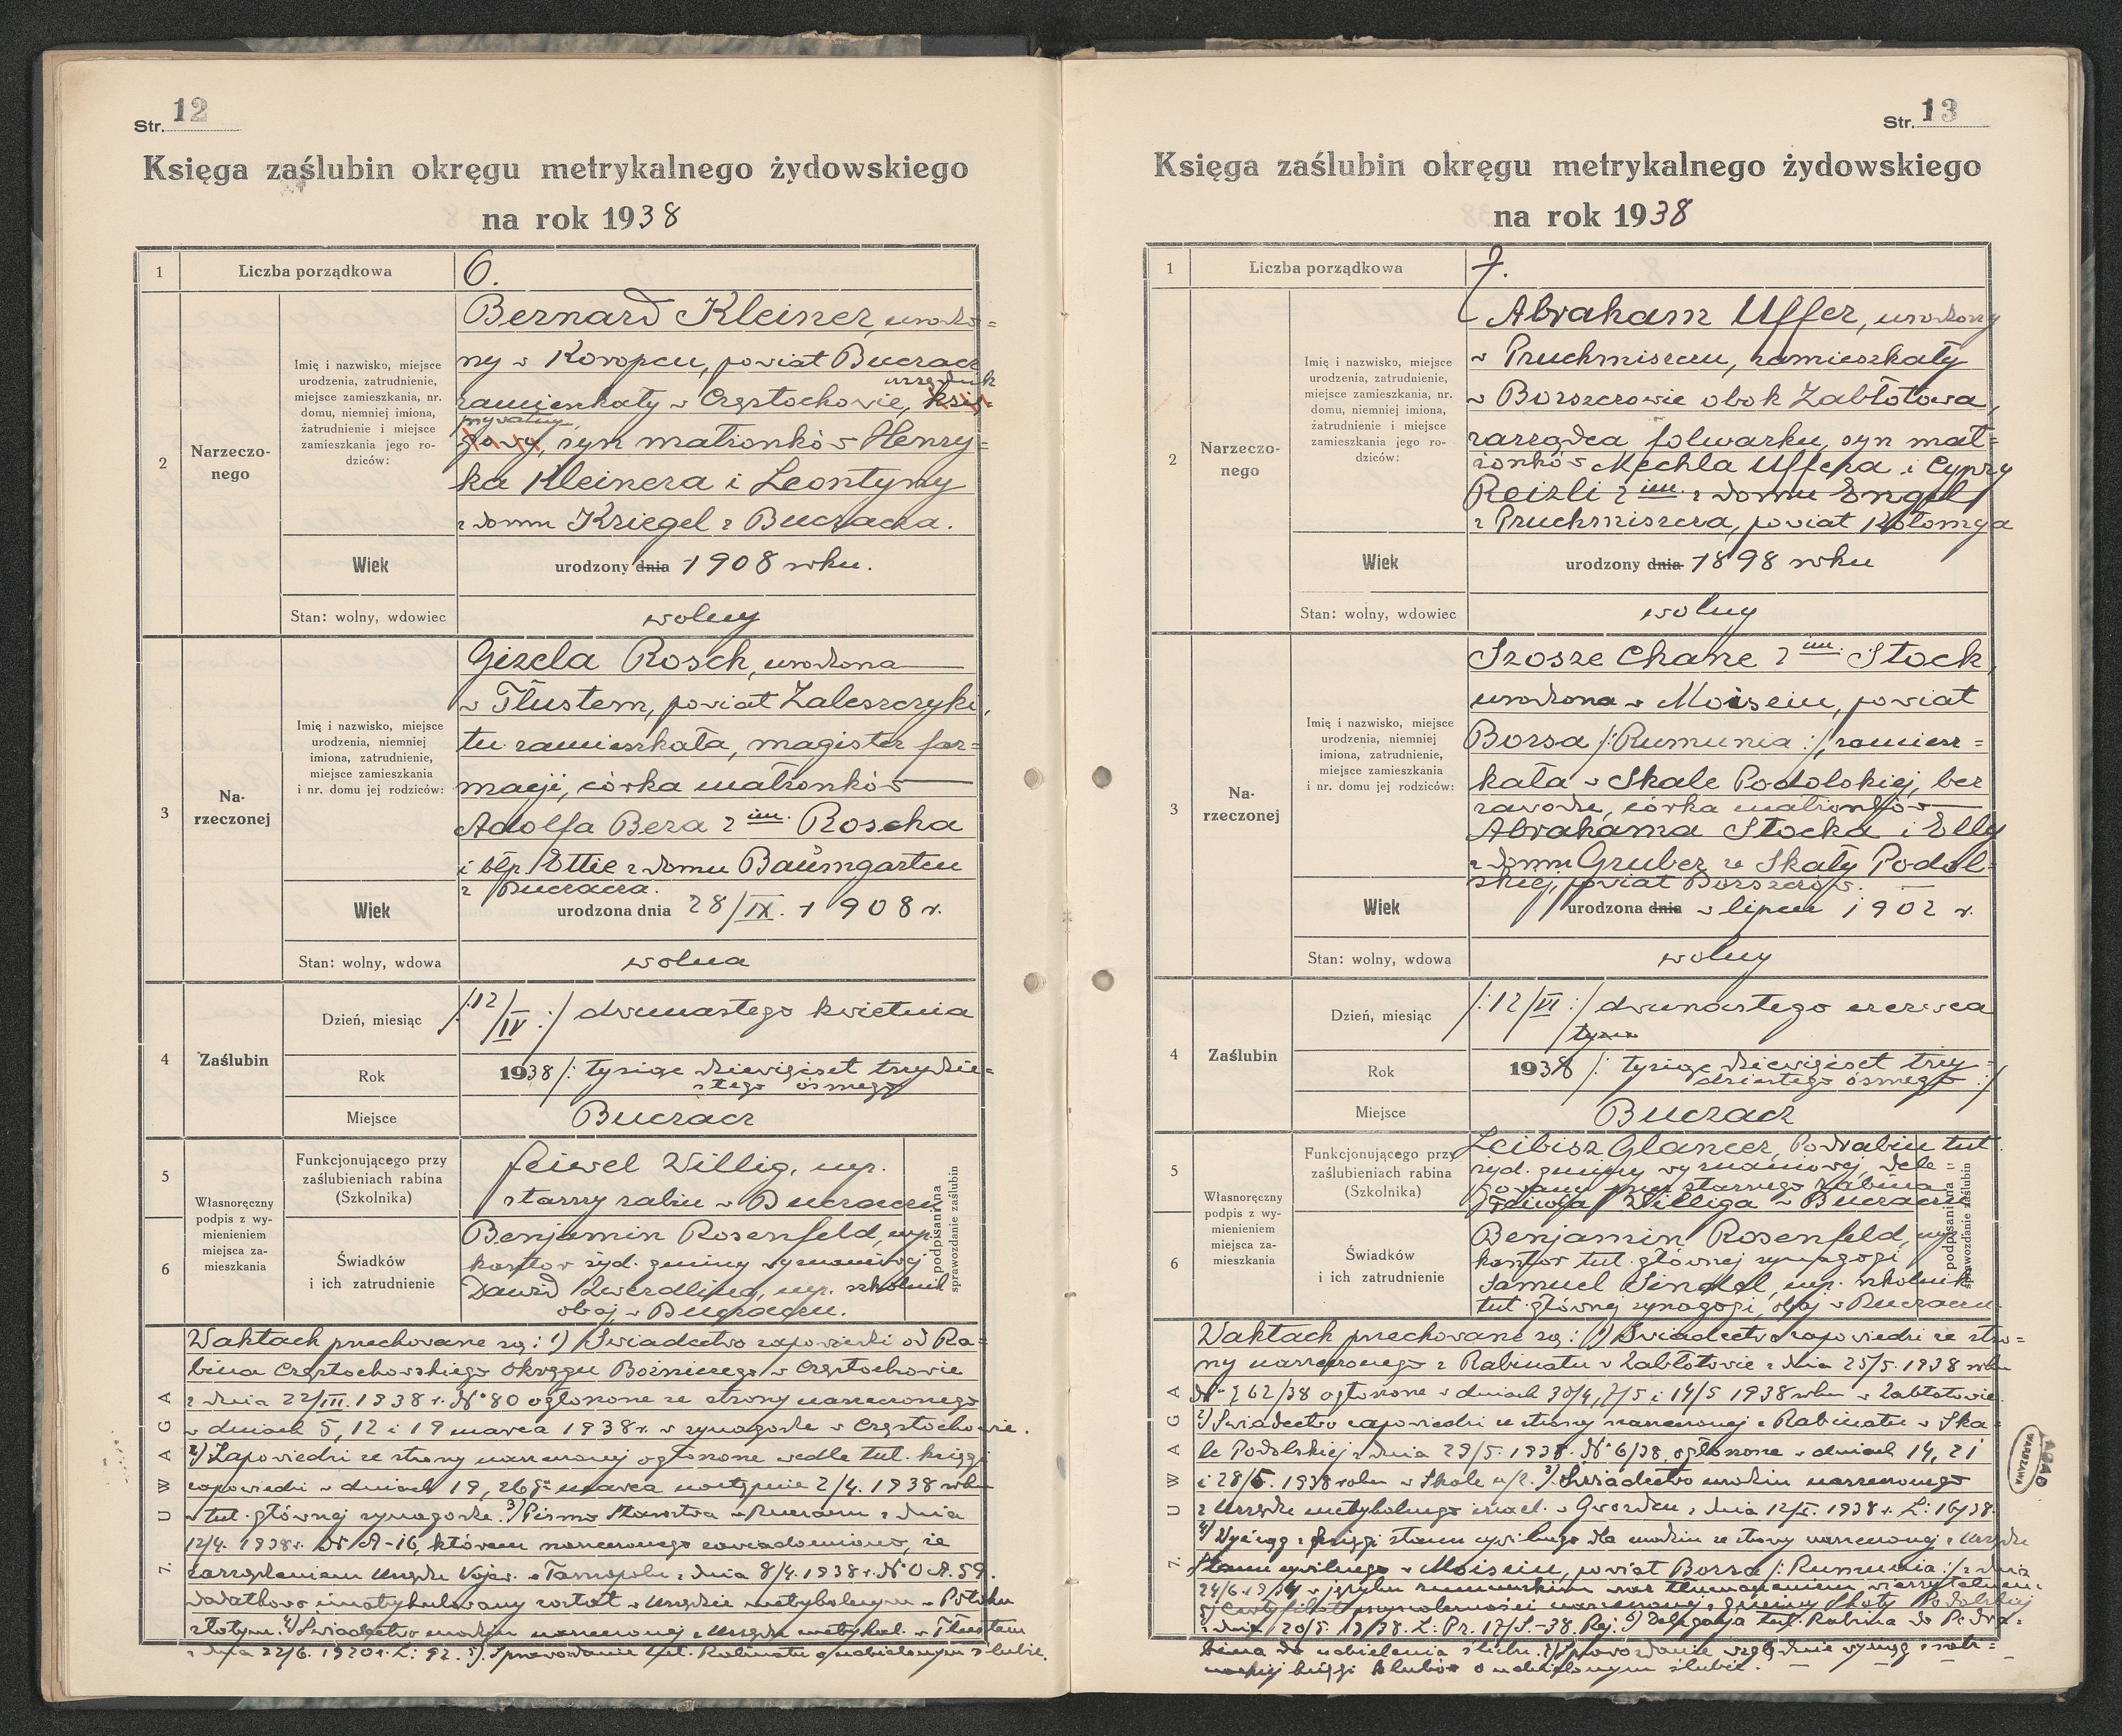 Str. 12
Księga zaślubin okręgu metrykalnego żydowskiego
na rok 1938
1
Liczba porządkowa
6.
2
Narzeczo-
nego
Imię i nazwisko, miejsce
urodzenia, zatrudnienie,
miejsce zamieszkania, nr.
domu, niemniej imiona,
żatrudnienie i miejsce
zamieszkania jego ro-
dziców:
Bernard Kleiner, urodzo=
ny w Koropcu, powiat Buczacz
urzędnik
zamieszkały w Częstochowie, księ-
prywatny
gowy, syn małżonków Henry=
ka Kleinera i Leontyny
z domu Kriegel z Buczacza.
Wiek
urodzony dnia 1908 roku.
Stan: wolny, wdowiec
wolny
3
Na-
rzeczonej
Imię i nazwisko, miejsce
urodzenia, niemniej
imiona, zatrudnienie,
miejsce zamieszkania
i nr. domu jej rodziców:
Gizela Rosch, urodzona
w Tłustem, powiat Zaleszczyki,
tu zamieszkała, magister far=
macji, córka małżonków
Adolfa Bera 2 im. Roscha
i błp. Ettie z domu Baumgarten
z Buczacza.
Wiek
urodzona dnia 28/IX. 1908 r.
Stan: wolny, wdowa
wolna
4
Zaślubin
Dzień, miesiąc
/:12/IV:/ dwunastego kwietnia
Rok
1938 /: tysiąc dziewięćset trzydzie=
stego ósmego
Miejsce
Buczacz
5
6
Własnoręczny
podpis z wy-
mienieniem
miejsca za-
mieszkania
Funkcjonującego przy
zaślubieniach rabina
(Szkolnika)
Feiwel Willig, mp.
starszy rabin w Buczaczu
Świadków
i ich zatrudnienie
Benjamin Rosenfeld, mp.
kantor żyd. gminy wyznaniowej
Dawid Zwerdling, mp. szkolnik
obaj w Buczaczu.
podpisani na
sprawozdanie zaślubin
7. UWAGA
W aktach przechowane są: 1) Świadectwo zapowiedzi od Ra=
bina Częstochowskiego Okręgu Bożniczego w Częstochowie
z dnia 22/III. 1938 r. No 80 ogłoszone ze strony narzeczonego
w dniach 5, 12 i 19 marca 1938 r. w synagodze w Częstochowie.
2) Zapowiedzi ze strony narzeczonej ogłoszone wedle tut. księgi
zapowiedzi w dniach 19, 26go marca następnie 2/4. 1938 roku
w tut. głównej synagodze. 3) Pismo Starostwa w Buczaczu z dnia
12/4. 1938 r. Nr A-16, którem narzeczonego zawiadomiono, że
zarządzeniem Urzędu Wojew. w Tarnopolu z dnia 8/4. 1938 r. No O.A.59.
dodatkowo imatrykulowany został w Urzędzie metrykalnym w Potoku
złotym. 4) Świadectwo urodzin narzeczonej z Urzędu metrykal. w Tłustem
z dnia 22/6. 1920 r. L: 92. 5) Sprawozdanie tut. Rabinatu o udzielonym ślubie.
Str. 13
Księga zaślubin okręgu metrykalnego żydowskiego
na rok 1938
1
Liczba porządkowa
7.
2
Narzeczo-
nego
Imię i nazwisko, miejsce
urodzenia, zatrudnienie,
miejsce zamieszkania, nr.
domu, niemniej imiona,
żatrudnienie i miejsce
zamieszkania jego ro-
dziców:
Abraham Uffer, urodzony
w Pruchniszczu, zamieszkały
w Borszczowie obok Zabłotowa,
zarządca folwarku, syn mał=
żonków Mechla Uffera i Cypry
Reizli 2 im. z domu Engel
z Pruchniszcza, powiat Kołomyja
Wiek
urodzony dnia 1898 roku
Stan: wolny, wdowiec
wolny
3
Na-
rzeczonej
Imię i nazwisko, miejsce
urodzenia, niemniej
imiona, zatrudnienie,
miejsce zamieszkania
i nr. domu jej rodziców:
Szosze Chane 2 im. Stock,
urodzona w Moiseiu, powiat
Borsa /:Rumunia:/, zamiesz=
kała w Skale Podolskiej, bez
zawodu, córka małżonków
Abrahama Stocka i Elly
z domu Gruber ze Skały Podol=
skiej, powiat Borszczów.
Wiek
urodzona dnia w lipcu 1902 r.
Stan: wolny, wdowa
wolny
4
Zaślubin
Dzień, miesiąc
/:12/VI:/ dwunastego czerwca
Rok
1938 /: tysiąc dziewięćset trzy=
dziestego ósmego :/
Miejsce
Buczacz
5
6
Własnoręczny
podpis z wy-
mienieniem
miejsca za-
mieszkania
Funkcjonującego przy
zaślubieniach rabina
(Szkolnika)
Leibisz Glancer, Podrabin tut.
żyd. gminy wyznaniowej, dele=
gowany przez starszego rabina
Feiwla Williga w Buczaczu
Świadków
i ich zatrudnienie
Benjamin Rosenfeld, mp.
kantor tut. głównej synagogi
Samuel Sindel, mp. szkolnik
tut. głównej synagogi, obaj w Buczaczu.
podpisani na
sprawozdanie zaślubin
7. UWAGA
W aktach przechowane są: 1) Świadectwo zapowiedzi ze stro=
ny narzeczonego z Rabinatu w Zabłotowie z dnia 25/5. 1938 roku
No 262/38 ogłoszone w dniach 30/4, 7/5 i 14/5 1938 roku w Zabłotowie.
2) Świadectwo zapowiedzi ze strony narzeczonej z Rabinatu w Ska=
le Podolskiej z dnia 29/5. 1938. No 6/38, ogłoszone w dniach 14, 21
i 28/5. 1938 roku w Skale n/Z. 3) Świadectwo urodzin narzeczonego
z Urzędu metrykalnego izrael. w Gwoźdźcu z dnia 12/V. 1938 r. L: 16/38.
4) Wyciąg z księgi stanu cywilnego dla urodzin ze strony narzeczonej z Urzędu
Stanu cywilnego w Moiseiu, powiat Borsa /:Rumunia:/ z dnia
w języku rumuńskim wraz tłumaczeniem wierzytelnem.
5) Certyfikat przynależności narzeczonej z gminy Skały Podolskiej
z dnia 20/5. 1938. L: Pr. 17/S.-38. Rej. 6) Delegacja tut. Rabina do Podra=
bina do udzielenia ślubu. 7) Sprawozdanie względnie wyciąg z
księgi ślubów o udzielonym ślubie.
AGAD
WARSZAWA